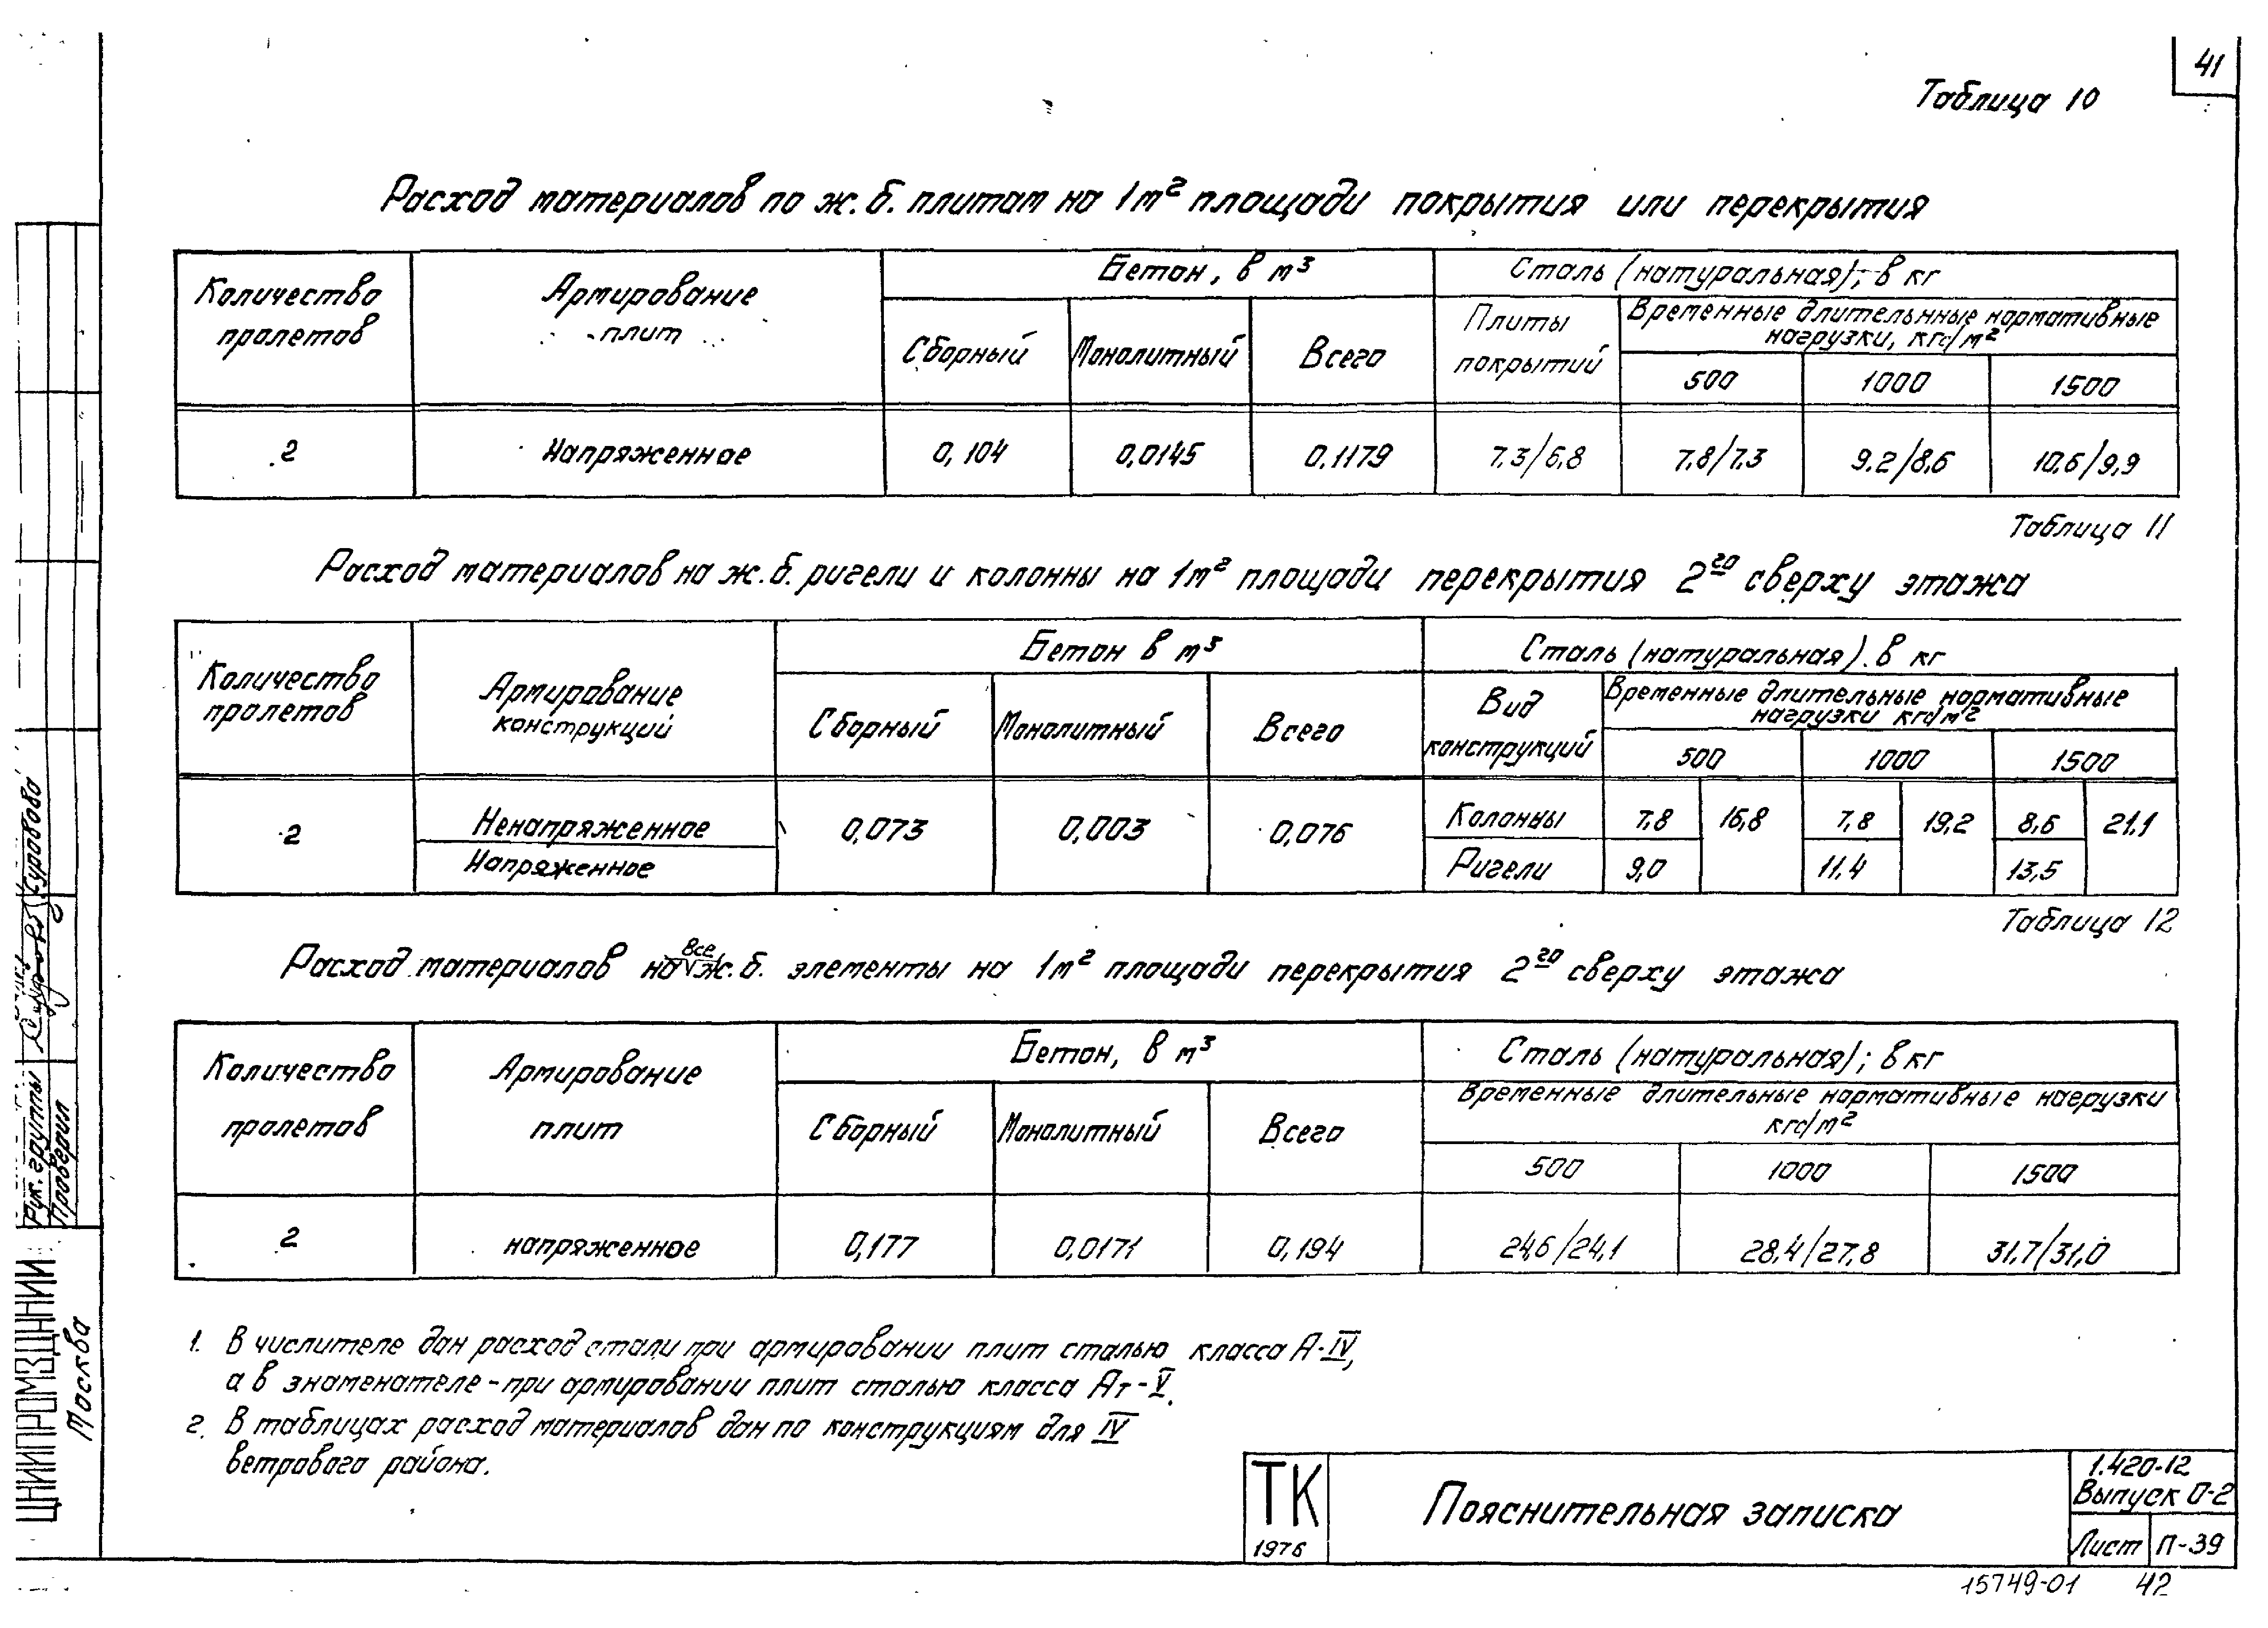 41
Таблица 10
Расход материалов по ж.б. плитам на 1м² площади покрытия или перекрытия
Количество пролетов
Армирование плит
Бетон, в м³
Сталь (натуральная); в кг
Сборный
Монолитный
Всего
Плиты покрытий
Временные длительнные нормативные
нагрузки, кгс/м²
500 1000 1500
2 Напряженное 0,104 0,0145 0,1179 7,3/6,8 7,8/7,3 9,2/8,6 10,6/9,9
Таблица 11
Расход материалов на ж.б. ригели и колонны на 1м² площади перекрытия 2го сверху этажа
Количество пролетов
Армирование конструкций
Бетон в м³
Сталь (натуральная). в кг
Сборный
Монолитный
Всего
Вид конструкций
Временные длительные нормативные
нагрузки кгс/м²
500 1000 1500
2 Ненапряженное 0,073 0,003 0,076 Колонны 7,8 16,8 7,8 19,2 8,6 21,1
Напряженное Ригели 9,0 11,4 13,5
Таблица 12
Расход материалов на все ж.б. элементы на 1м² площади перекрытия 2го сверху этажа
Количество пролетов
Армирование плит
Бетон, в м³
Сталь (натуральная); в кг
Сборный
Монолитный
Всего
Временные длительные нормативные нагрузки
кгс/м²
500 1000 1500
2 напряженное 0,177 0,0171 0,194 24,6/24,1 28,4/27,8 31,7/31,0
1. В числителе дан расход стали при армировании плит сталью класса А-IV,
а в знаменателе - при армировании плит сталью класса Ат-V.
2. В таблицах расход материалов дан по конструкциям для IV
ветрового района.
ТК
1976
Пояснительная записка
1.420-12
Выпуск 0-2
Лист П-39
15749-01 42
Рук. группы
Проверил
ЦНИИПРОМЗДАНИЙ
Москва